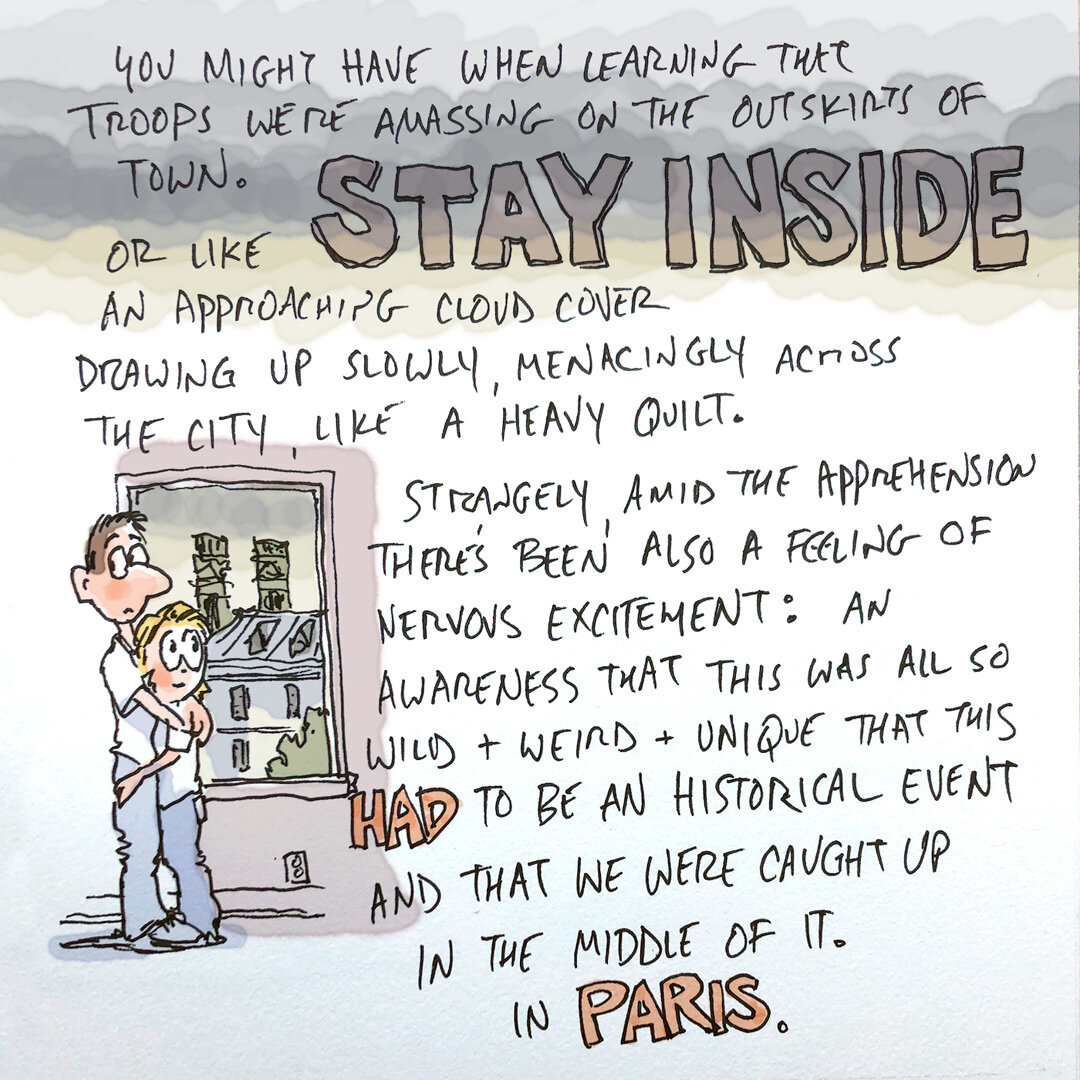 YOU MIGHT HAVE WHEN LEARNING THAT
TROOPS WERE AMASSING ON THE OUTSKIRTS OF
TOWN.
STAY INSIDE
OR LIKE
AN APPROACHING CLOUD COVER
DRAWING UP SLOWLY, MENACINGLY ACROSS
THE CITY, LIKE A HEAVY QUILT.
STRANGELY, AMID THE APPREHENSION
THERE'S BEEN ALSO A FEELING OF
NERVOUS EXCITEMENT: AN
AWARENESS THAT THIS WAS ALL SO
WILD + WEIRD + UNIQUE THAT THIS
HAD TO BE AN HISTORICAL EVENT
AND THAT WE WERE CAUGHT UP
IN THE MIDDLE OF IT.
IN PARIS.